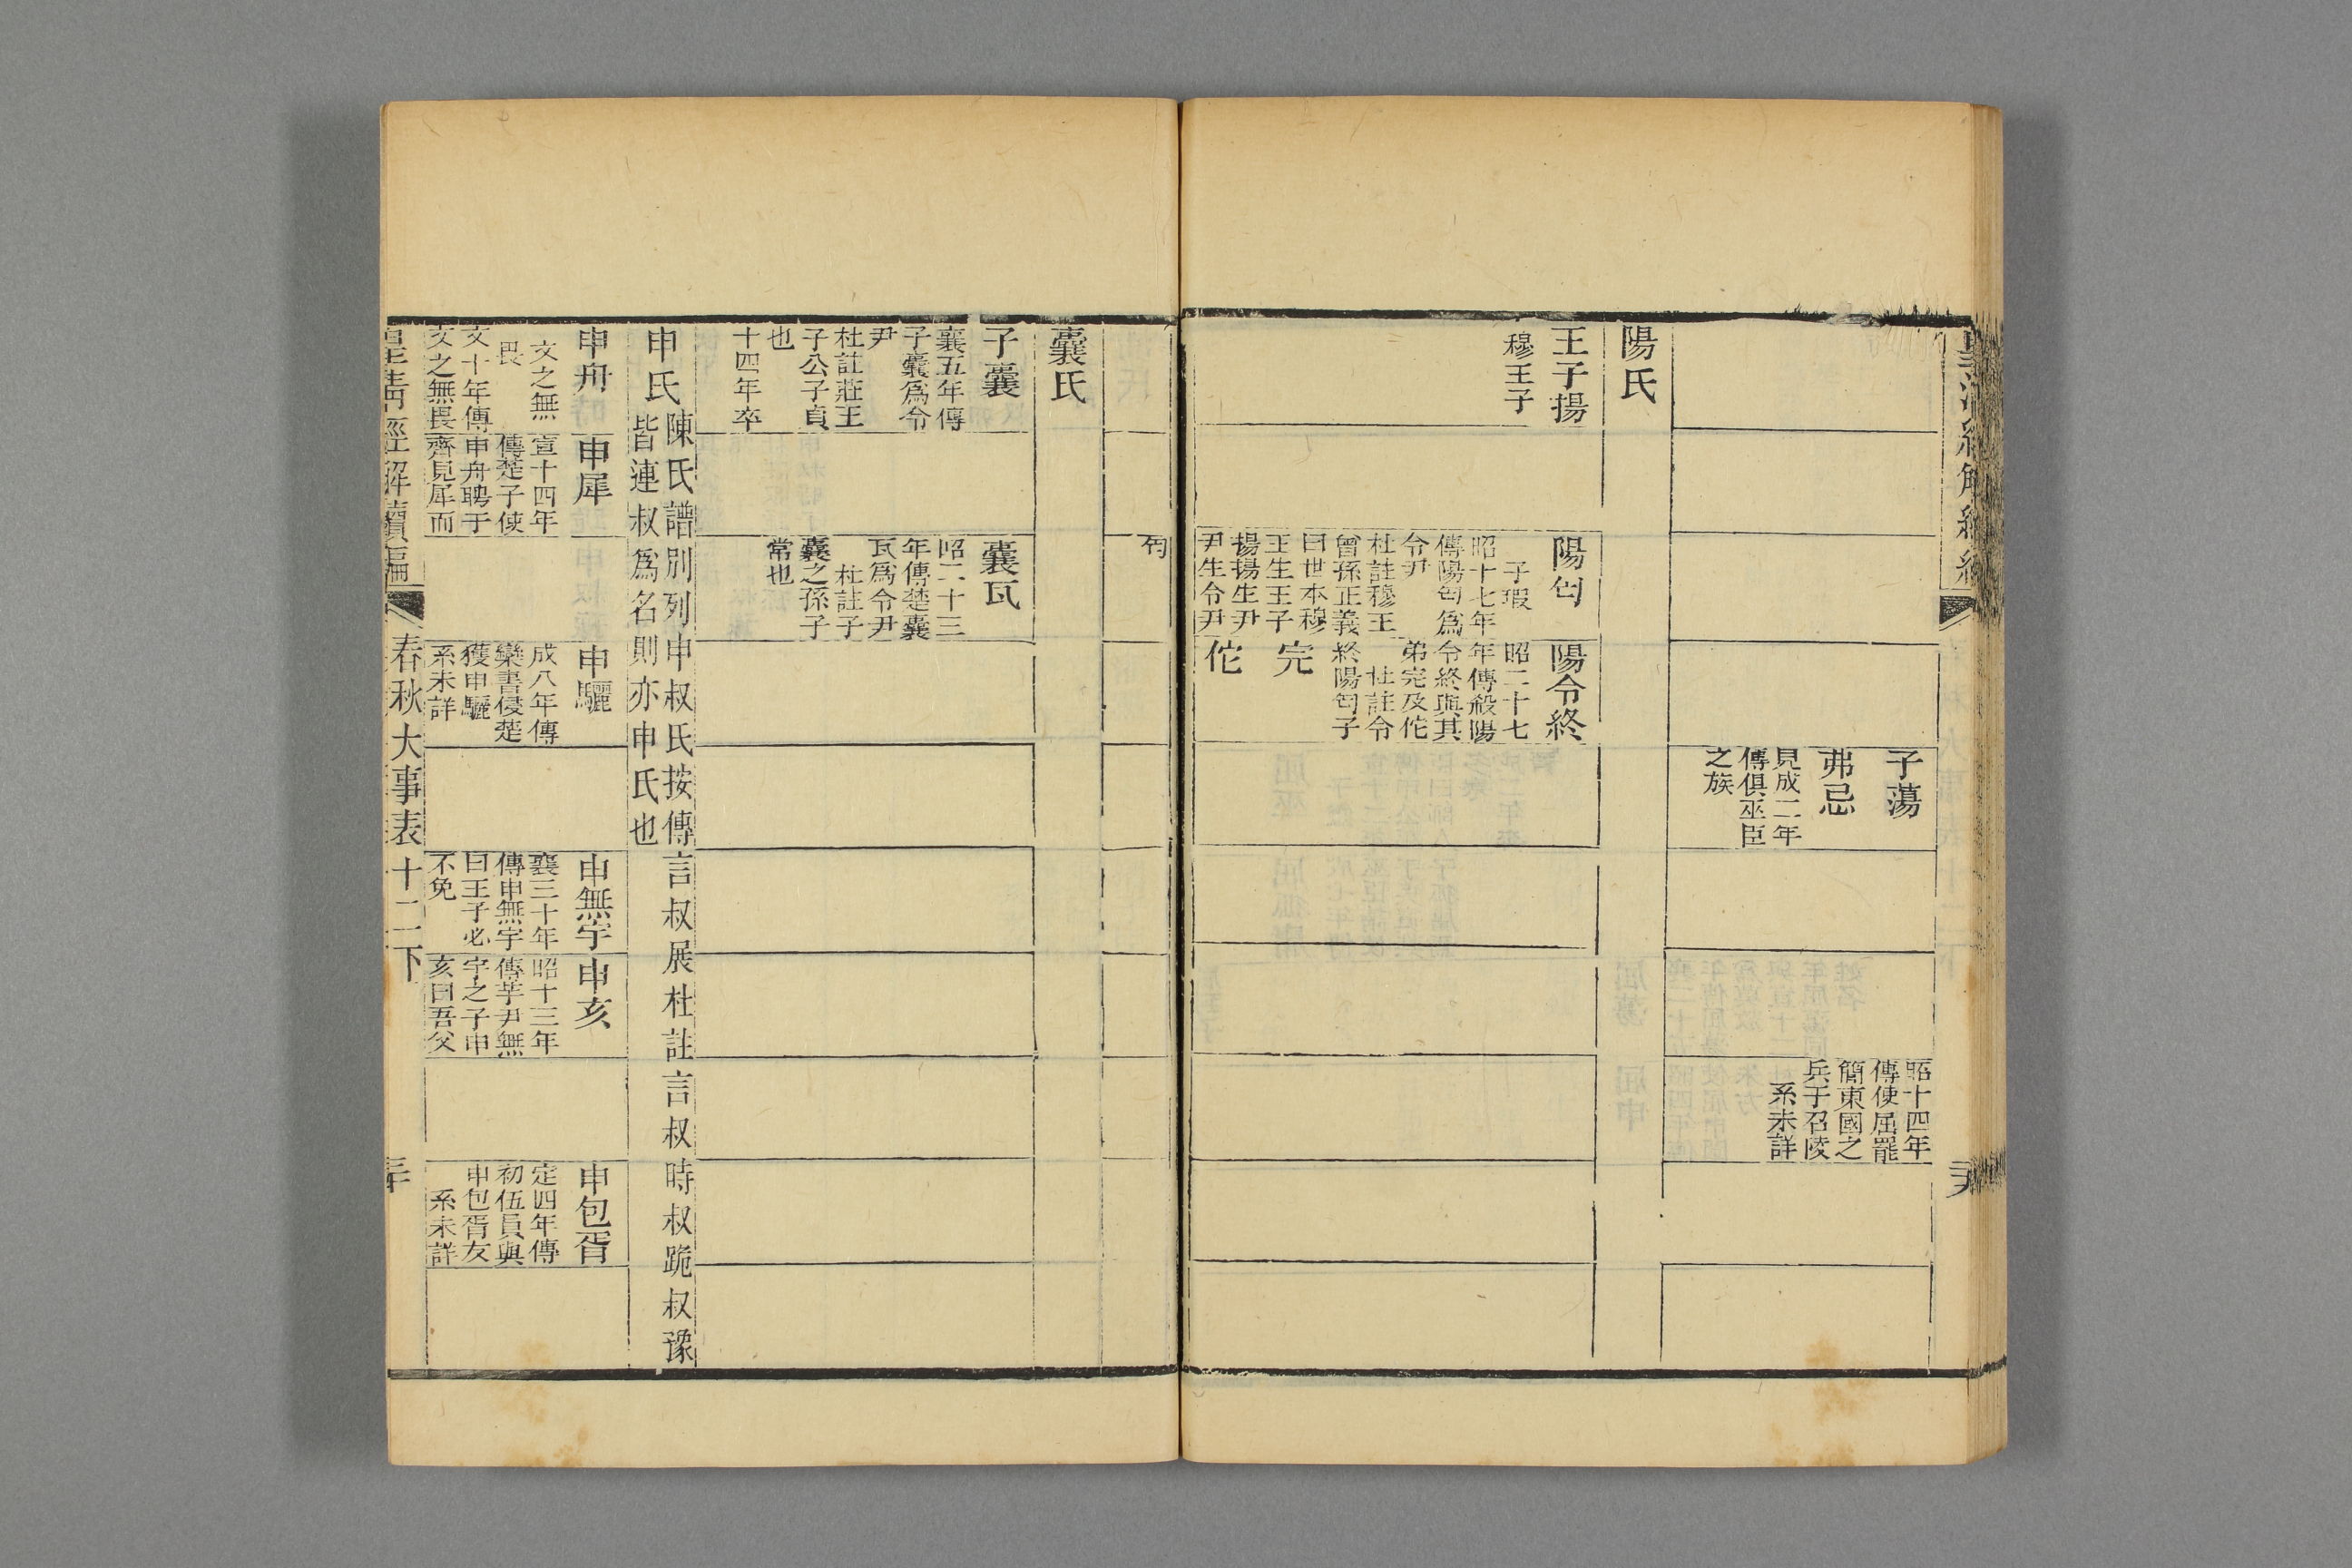 子蕩
弗忌
見成二年
傳俱巫臣
之族
昭十四年
傳使屈罷
簡東國之
兵于召陵
系未詳
陽氏
王子揚
穆王子
陽匄
子瑕
昭十七年
傳陽匄爲
令尹
杜註穆王
曾孫正義
曰世本穆
王生王子
揚揚生尹
尹生令尹
陽令終
昭二十七
年傳殺陽
令終與其
弟完及佗
杜註令
終陽匄子
完
佗
匄
囊氏
子囊
襄五年傳
子囊爲令
尹
杜註莊王
子公子貞
也
十四年卒
囊瓦
昭二十三
年傳楚囊
瓦爲令尹
杜註子
囊之孫子
常也
申氏
陳氏譜別列申叔氏按傳言叔展杜註言叔時叔跪叔豫
皆連叔爲名則亦申氏也
申舟
文之無
畏
文十年傳
文之無畏
申犀
宣十四年
傳楚子使
申舟聘于
齊見犀而
申驪
成八年傳
欒書侵楚
獲申驪
系未詳
申無宇
襄三十年
傳申無宇
曰王子必
不免
申亥
昭十三年
傳芋尹無
宇之子申
亥曰吾父
申包胥
定四年傳
初伍員與
申包胥友
系未詳
皇清經解續編
春秋大事表十二下